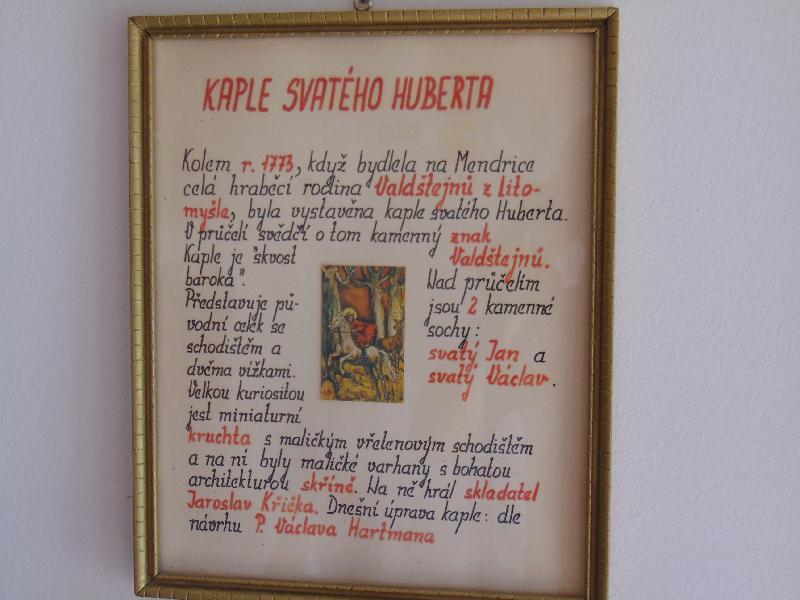 KAPLE SVATÉHO HUBERTA
Kolem r. 1773, když bydlela na Mendrice
celá hraběcí rodina Valdštejnů z Lito-
myšle, byla vystavěna kaple svatého Huberta.
V průčelí svědčí o tom kamenný znak
Valdštejnů.
Kaple je "skvost
baroka".
Představuje pů-
vodní celek se
schodištěm a
dvěma vížkami.
Velkou kuriositou
jest miniaturní
Nad průčelím
jsou 2 kamenné
sochy:
svatý Jan a
svatý Václav.
kruchta s maličkým vřetenovým schodištěm
a na ní byly maličké varhany s bohatou
architekturou skříně. Na ně hrál skladatel
Jaroslav Křička. Dnešní úprava kaple: dle
návrhu P. Václava Hartmana